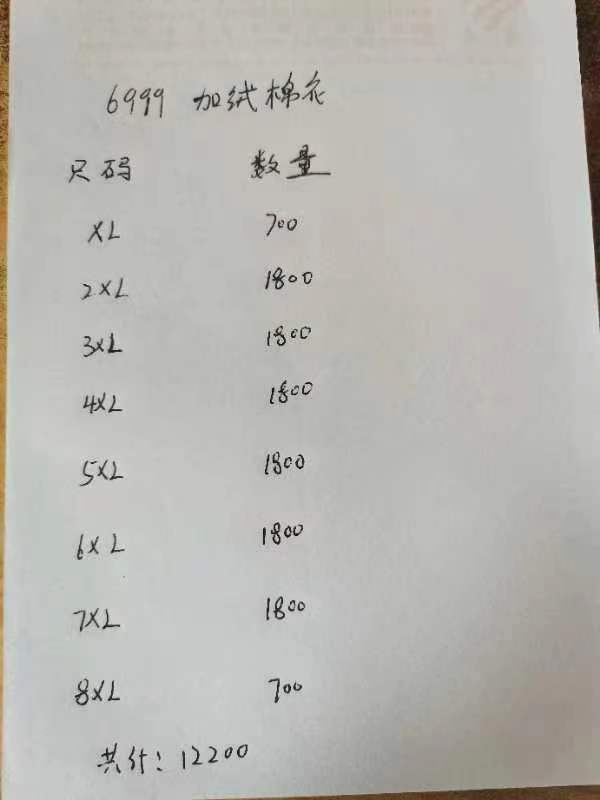 6999 加绒棉衣
尺码 数量
XL 700
2XL 1800
3XL 1800
4XL 1800
5XL 1800
6XL 1800
7XL 1800
8XL 700
共计：12200